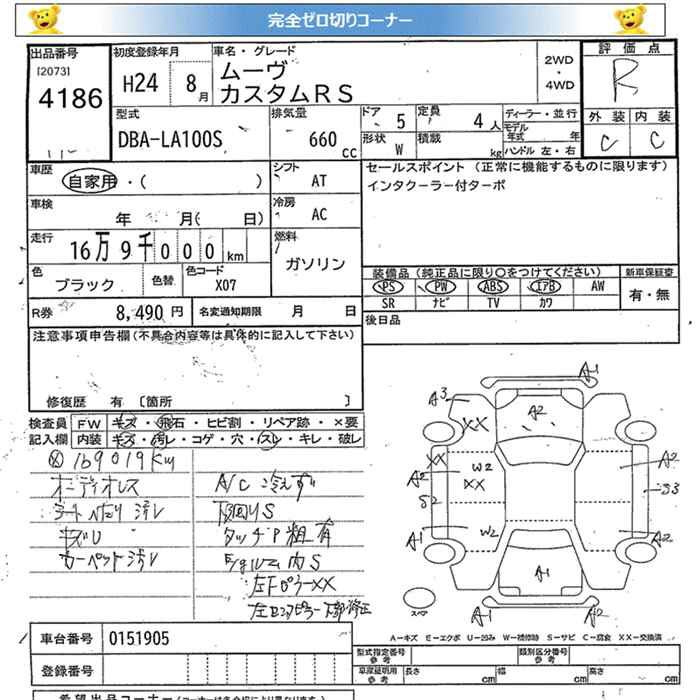 完全ゼロ切りコーナー
出品番号
[2073]
4186
初度登録年月
H24 8月
車名・グレード
ムーヴ
カスタムRS
2WD
・
4WD
評価点
R
外装 内装
C C
型式
DBA-LA100S
排気量
660 cc
ドア 5
定員 4人
形状 W
積載 kg
ディーラー・並行
モデル年式 年
ハンドル 左・右
車歴
自家用・( )
シフト AT
セールスポイント(正常に機能するものに限ります)
インタクーラー付ターボ
車検
年 月( 日)
冷房 AC
走行
16万9千000km
燃料
ガソリン
色
ブラック
色替
色コード
X07
装備品(純正品に限り○をつけてください) 新車保証書
PS PW ABS エアB AW
SR ナビ TV カワ
有・無
R券 8,490円
名変通知期限 月 日
後日品
注意事項申告欄(不具合内容等は具体的に記入して下さい)
修復歴 有〔箇所 〕
検査員記入欄
FW キズ・飛石・ヒビ割・リペア跡・×要
内装 キズ・汚レ・コゲ・穴・スレ・キレ・破レ
169019km
オーディオレス
シートヘタリ汚レ
キズU
カーペット汚レ
A/C冷えず
下回りS
タッチP粗有
E/gルーム内S
左FピラーXX
A1
A3
XX
A2
XX
A2
S2
W2
XX
A1
W2
A2
S3
A2
A1
スペア
A1
A2
A-キズ E-エクボ U-凹み W-補修跡 S-サビ C-腐食 XX-交換済
車台番号 0151905
登録番号
型式指定番号 参考
類別区分番号 参考
車庫証明用 参考
長さ cm 幅 cm 高さ cm
希望出品コーナー